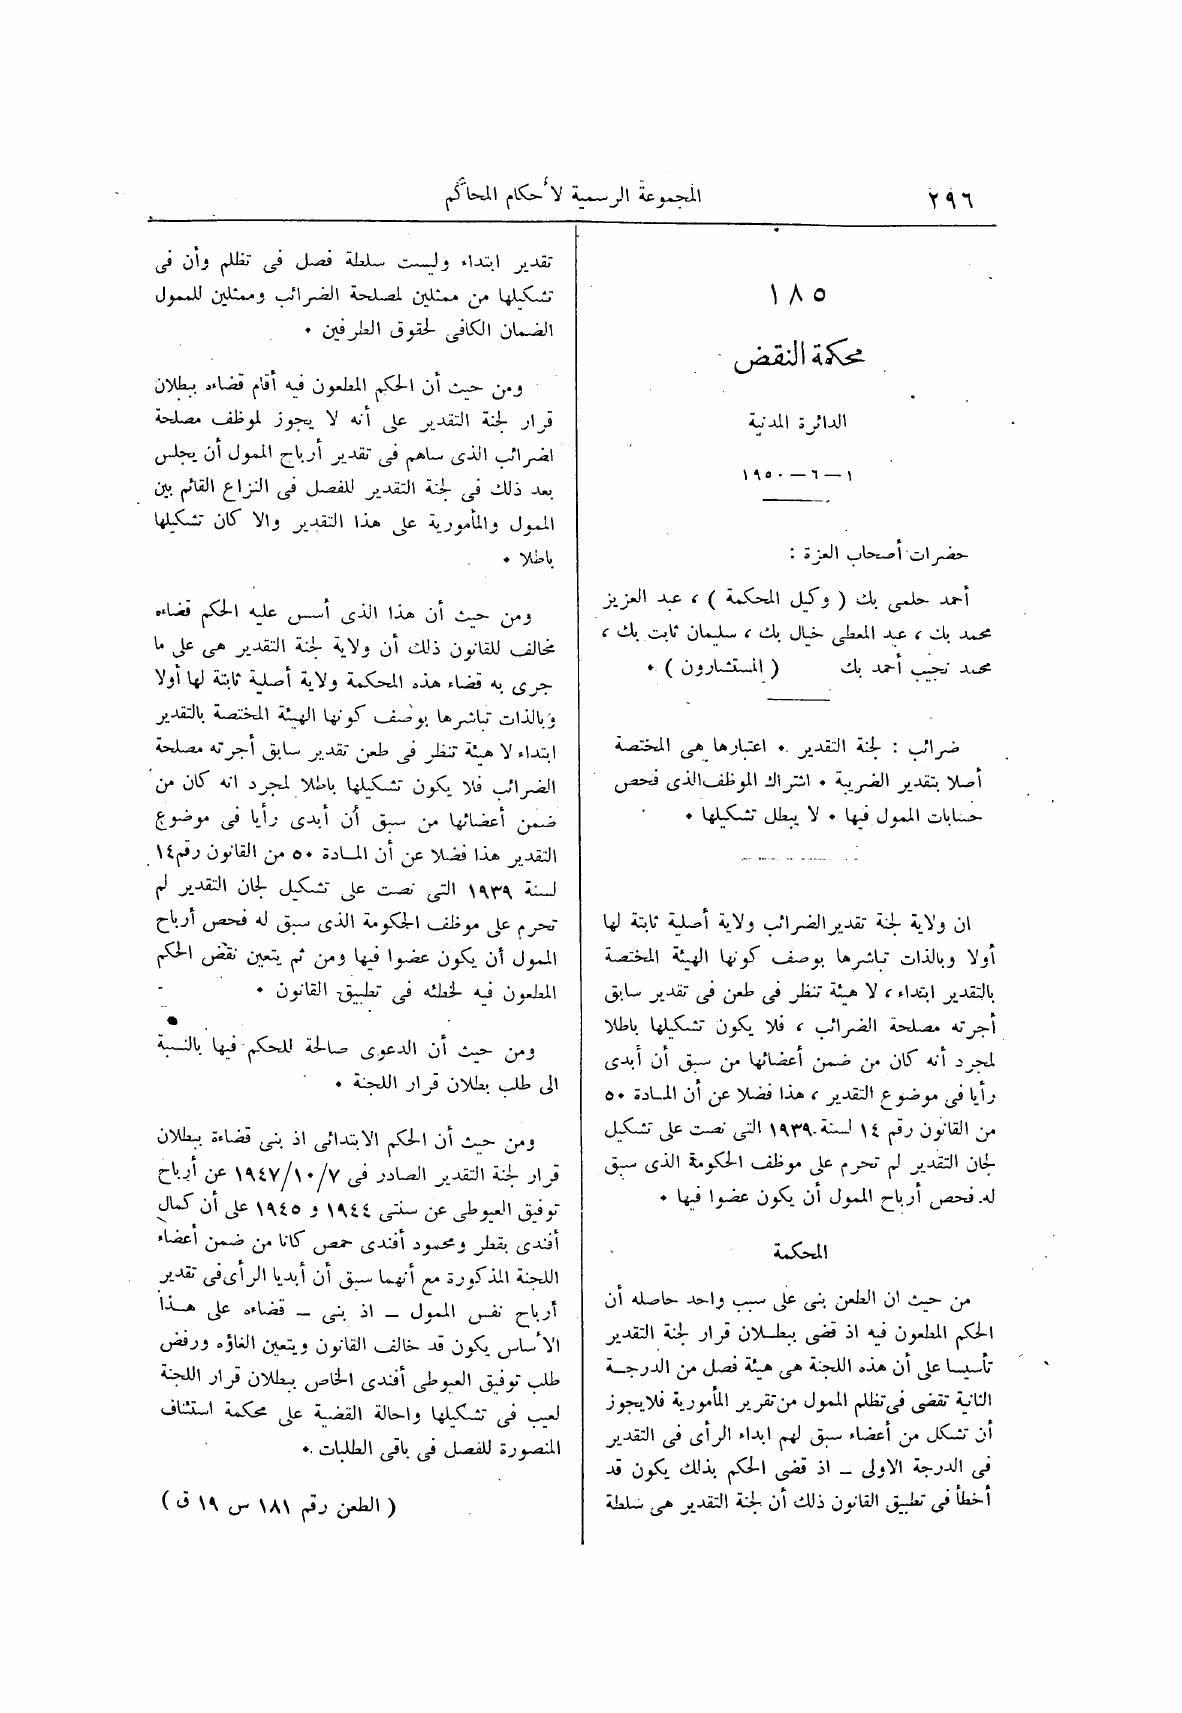 ٢٩٦
المجموعة الرسمية لأحكام المحاكم
١٨٥
محكمة النقض
الدائرة المدنية
١ – ٦ – ١٩٥٠
حضرات أصحاب العزة :
أحمد حلمى بك ( وكيل المحكمة ) ، عبد العزيز
محمد بك ، عبد المعطى خيال بك ، سليمان ثابت بك ،
محمد نجيب أحمد بك ( المستشارون ) .
ضرائب : لجنة التقدير . اعتبارها هى المختصة
أصلا بتقدير الضريبة . اشتراك الموظف الذى فحص
حسابات الممول فيها . لا يبطل تشكيلها .
ان ولاية لجنة تقدير الضرائب ولاية أصلية ثابتة لها
أولا وبالذات تباشرها بوصف كونها الهيئة المختصة
بالتقدير ابتداء ، لا هيئة تنظر فى طعن فى تقدير سابق
أجرته مصلحة الضرائب ، فلا يكون تشكيلها باطلا
لمجرد أنه كان من ضمن أعضائها من سبق أن أبدى
رأيا فى موضوع التقدير ، هذا فضلا عن أن المادة ٥٠
من القانون رقم ١٤ لسنة ١٩٣٩ التى نصت على تشكيل
لجان التقدير لم تحرم على موظف الحكومة الذى سبق
له فحص أرباح الممول أن يكون عضوا فيها .
المحكمة
من حيث ان الطعن بنى على سبب واحد حاصله أن
الحكم المطعون فيه اذ قضى ببطلان قرار لجنة التقدير
تأسيسا على أن هذه اللجنة هى هيئة فصل من الدرجة
الثانية تقضى فى تظلم الممول من تقرير المأمورية فلا يجوز
أن تشكل من أعضاء سبق لهم ابداء الرأى فى التقدير
فى الدرجة الاولى – اذ قضى الحكم بذلك يكون قد
أخطأ فى تطبيق القانون ذلك أن لجنة التقدير هى سلطة
تقدير ابتداء وليست سلطة فصل فى تظلم وأن فى
تشكيلها من ممثلين لمصلحة الضرائب وممثلين للممول
الضمان الكافى لحقوق الطرفين .
ومن حيث أن الحكم المطعون فيه أقام قضاءه ببطلان
قرار لجنة التقدير على أنه لا يجوز لموظف مصلحة
اضرائب الذى ساهم فى تقدير أرباح الممول أن يجلس
بعد ذلك فى لجنة التقدير للفصل فى النزاع القائم بين
الممول والمأمورية على هذا التقدير والا كان تشكيلها
باطلا .
ومن حيث أن هذا الذى أسس عليه الحكم قضاءه
مخالف للقانون ذلك أن ولاية لجنة التقدير هى على ما
جرى به قضاء هذه المحكمة ولاية أصلية ثابتة لها أولا
وبالذات تباشرها بوصف كونها الهيئة المختصة بالتقدير
ابتداء لا هيئة تنظر فى طعن تقدير سابق أجرته مصلحة
الضرائب فلا يكون تشكيلها باطلا لمجرد انه كان من
ضمن أعضائها من سبق أن أبدى رأيا فى موضوع
التقدير هذا فضلا عن أن المادة ٥٠ من القانون رقم ١٤
لسنة ١٩٣٩ التى نصت على تشكيل لجان التقدير لم
تحرم على موظف الحكومة الذى سبق له فحص أرباح
الممول أن يكون عضوا فيها ومن ثم يتعين نقض الحكم
المطعون فيه لخطئه فى تطبيق القانون .
ومن حيث أن الدعوى صالحة للحكم فيها بالنسبة
الى طلب بطلان قرار اللجنة .
ومن حيث أن الحكم الابتدائى اذ بنى قضاءة ببطلان
قرار لجنة التقدير الصادر فى ١٩٤٧/١٠/٧ عن أرباح
توفيق العيوطى عن سنتى ١٩٤٤ و ١٩٤٥ على أن كمال
أفندى بقطر ومحمود أفندى حمص كانا من ضمن أعضاء
اللجنة المذكورة مع أنهما سبق أن أبديا الرأى فى تقدير
أرباح نفس الممول – اذ بنى – قضاءه على هذا
الأساس يكون قد خالف القانون ويتعين الغاؤه ورفض
طلب توفيق العيوطى أفندى الخاص ببطلان قرار اللجنة
لعيب فى تشكيلها واحالة القضية على محكمة استئناف
المنصورة للفصل فى باقى الطلبات .
( الطعن رقم ١٨١ س ١٩ ق )